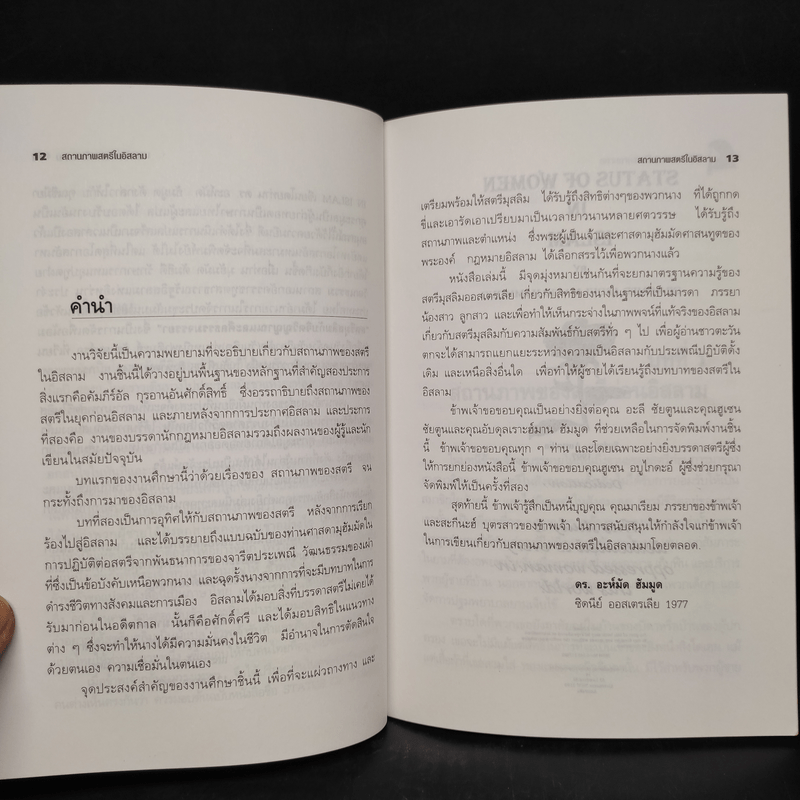 12 สถานภาพสตรีในอิสลาม
คำนำ
งานวิจัยนี้เป็นความพยายามที่จะอธิบายเกี่ยวกับสถานภาพของสตรี
ในอิสลาม งานชิ้นนี้ได้วางอยู่บนพื้นฐานของหลักฐานที่สำคัญสองประการ
สิ่งแรกคือคัมภีร์อัล กุรอานอันศักดิ์สิทธิ์ ซึ่งอรรถาธิบายถึงสถานภาพของ
สตรีในยุคก่อนอิสลาม และภายหลังจากการประกาศอิสลาม และประการ
ที่สองคือ งานของบรรดานักกฎหมายอิสลามรวมถึงผลงานของผู้รู้และนัก
เขียนในสมัยปัจจุบัน
บทแรกของงานศึกษานี้ว่าด้วยเรื่องของ สถานภาพของสตรี จน
กระทั่งถึงการมาของอิสลาม
บทที่สองเป็นการอุทิศให้กับสถานภาพของสตรี หลังจากการเรียก
ร้องไปสู่อิสลาม และได้บรรยายถึงแบบฉบับของท่านศาสดามุฮัมมัดใน
การปฏิบัติต่อสตรีจากพันธนาการของจารีตประเพณี วัฒนธรรมของเผ่า
ที่ซึ่งเป็นข้อบังคับเหนือพวกนาง และฉุดรั้งนางจากการที่จะมีบทบาทในการ
ดำรงชีวิตทางสังคมและการเมือง อิสลามได้มอบสิ่งที่บรรดาสตรีไม่เคยได้
รับมาก่อนในอดีตกาล นั้นก็คือศักดิ์ศรี และได้มอบสิทธิในแนวทาง
ต่าง ๆ ซึ่งจะทำให้นางได้มีความมั่นคงในชีวิต มีอำนาจในการตัดสินใจ
ด้วยตนเอง ความเชื่อมั่นในตนเอง
จุดประสงค์สำคัญของงานศึกษาชิ้นนี้ เพื่อที่จะแผ่วถางทาง และ
สถานภาพสตรีในอิสลาม 13
เตรียมพร้อมให้สตรีมุสลิม ได้รับรู้ถึงสิทธิต่างๆของพวกนาง ที่ได้ถูกกด
ขี่และเอารัดเอาเปรียบมาเป็นเวลายาวนานหลายศตวรรษ ได้รับรู้ถึง
สถานภาพและตำแหน่ง ซึ่งพระผู้เป็นเจ้าและศาสดามุฮัมมัดศาสนทูตของ
พระองค์ กฎหมายอิสลาม ได้เลือกสรรไว้เพื่อพวกนางแล้ว
หนังสือเล่มนี้ มีจุดมุ่งหมายเช่นกันที่จะยกมาตรฐานความรู้ของ
สตรีมุสลิมออสเตรเลีย เกี่ยวกับสิทธิของนางในฐานะที่เป็นมารดา ภรรยา
น้องสาว ลูกสาว และเพื่อทำให้เห็นกระจ่างในภาพพจน์ที่แท้จริงของอิสลาม
เกี่ยวกับสตรีมุสลิมกับความสัมพันธ์กับสตรีทั่ว ๆ ไป เพื่อผู้อ่านชาวตะวัน
ตกจะได้สามารถแยกแยะระหว่างความเป็นอิสลามกับประเพณีปฏิบัติดั้ง
เดิม และเหนือสิ่งอื่นใด เพื่อทำให้ผู้ชายได้เรียนรู้ถึงบทบาทของสตรีใน
อิสลาม
ข้าพเจ้าขอขอบคุณเป็นอย่างยิ่งต่อคุณ อะลี ชัยตูนและคุณฮูเซน
ชัยตูนและคุณอับดุลเราะฮ์มาน ฮัมมูด ที่ช่วยเหลือในการจัดพิมพ์งานชิ้น
นี้ ข้าพเจ้าขอขอบคุณทุก ๆ ท่าน และโดยเฉพาะอย่างยิ่งบรรดาสตรีผู้ซึ่ง
ให้การยกย่องหนังสือนี้ ข้าพเจ้าขอขอบคุณฮูเซน อบูไกดะอ์ ผู้ซึ่งช่วยกรุณา
จัดพิมพ์ให้เป็นครั้งที่สอง
สุดท้ายนี้ ข้าพเจ้ารู้สึกเป็นหนี้บุญคุณ คุณมาเรียม ภรรยาของข้าพเจ้า
และสะกีนะฮ์ บุตรสาวของข้าพเจ้า ในการสนับสนุนให้กำลังใจแก่ข้าพเจ้า
ในการเขียนเกี่ยวกับสถานภาพของสตรีในอิสลามมาโดยตลอด.
ดร. อะห์มัด ฮัมมูด
ซิดนีย์ ออสเตรเลีย 1977